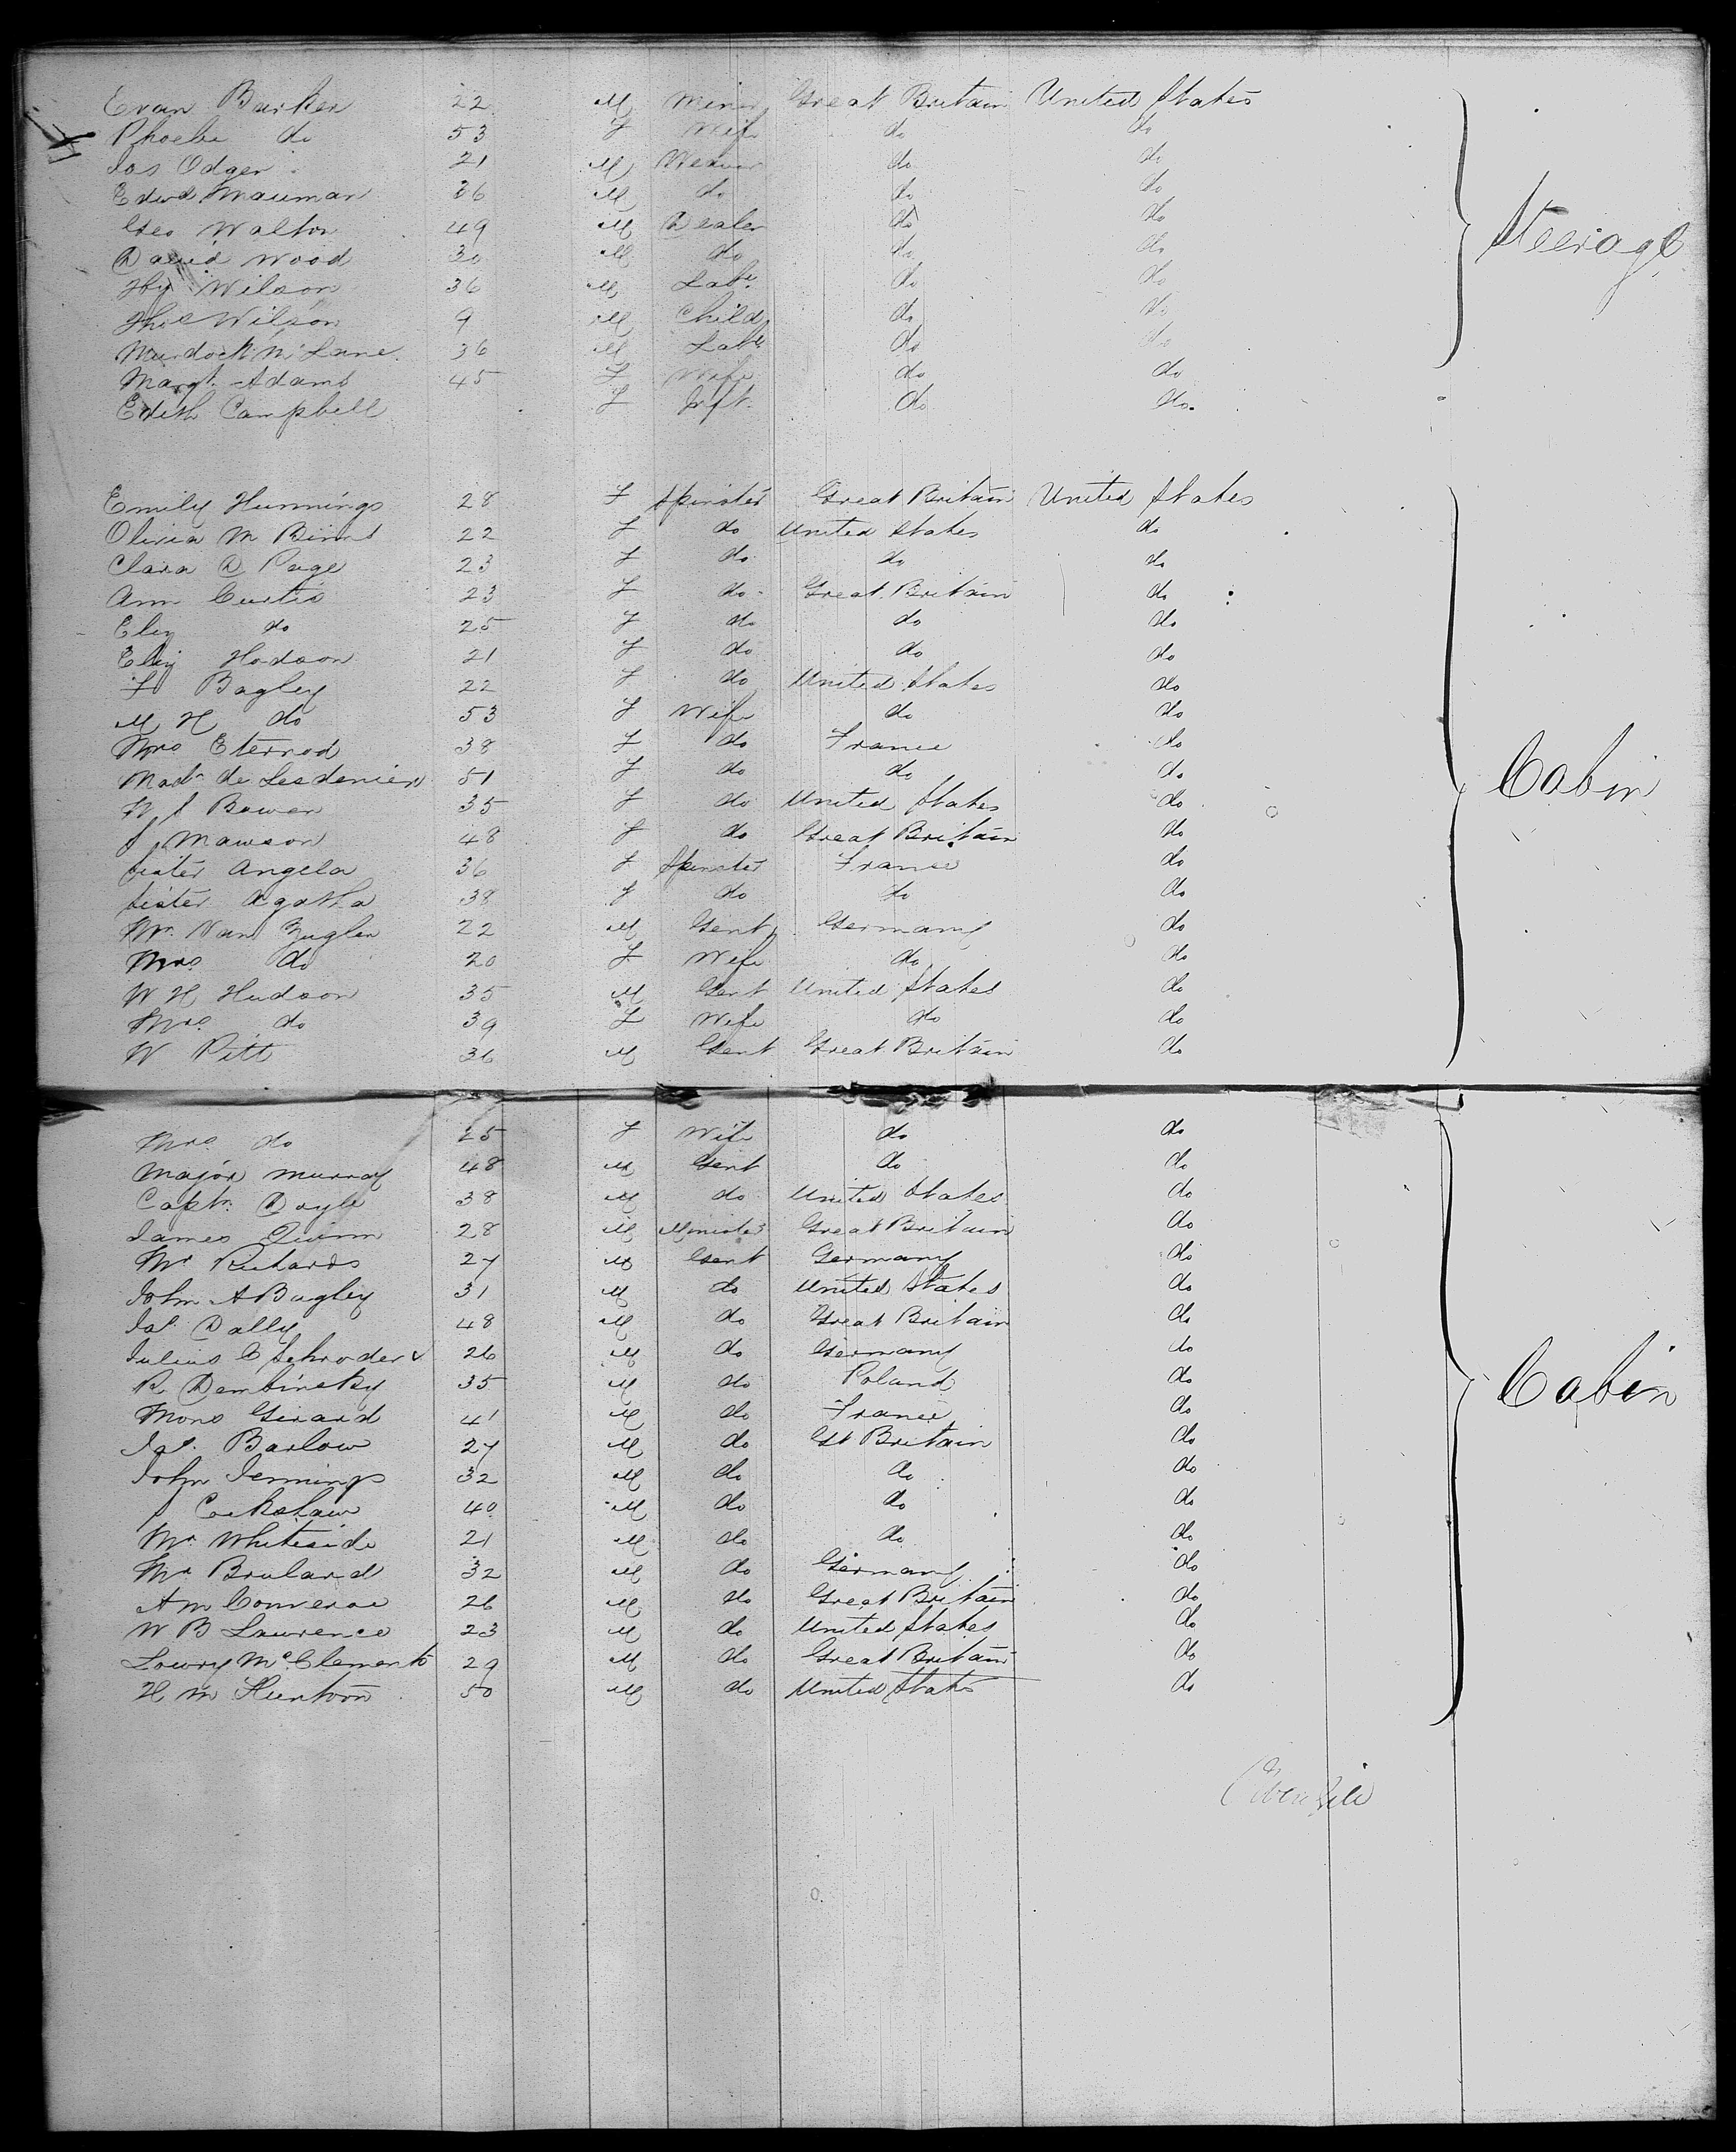 Evan Barker 22 M Miner Great Britain United States
Phoebe do 53 F Wife do do
Jas Odger 21 M Weaver do do
Edwd Mauman 36 M do do do
Geo Walton 49 M Dealer do do
David Wood 30 M do do do
Hy Wilson 36 M Labr do do
Thos Wilson 9 M Child do do
Murdock McLane 36 M Labr do do
Margt Adams 45 F Wife do do
Edith Campbell F Inft. do do
Steerage
Emily Hunnings 28 F Spinster Great Britain United States
Olivia M Binns 22 F do United States do
Clara D Page 23 F do do do
Ann Curtis 23 F do Great Britain do
Eliz do 25 F do do do
Eliz Hodson 21 F do do do
F Bagley 22 F do United States do
M H do 53 F Wife do do
Mrs Eternod 38 F do France do
Madm de Lesdenier 51 F do do do
W J Bowen 35 F do United States do
J Mawson 48 F do Great Britain do
Sister Angela 36 F Spinster France do
Sister Agatha 38 F do do do
Mr Van Zuglen 22 M Gent Germany do
Mrs do 20 F Wife do do
W H Hudson 35 M Gent United States do
Mrs do 39 F Wife do do
W Pitt 36 M Gent Great Britain do
Cabin
Mrs do 25 F Wife do do
Major Murray 48 M Gent do do
Captn Doyle 38 M do United States do
James Quinn 28 M Minister Great Britain do
Mr Richards 27 M Gent Germany do
John A Bagley 31 M do United States do
Jas. Dally 48 M do Great Britain do
Julius C Schroder 26 M do Germany do
R Dembinsky 35 M do Poland do
Mons Girard 41 M do France do
Jas. Barlow 27 M do Gt Britain do
John Jennings 32 M do do do
J Cockshaw 40 M do do do
Mr Whiteside 21 M do do do
Mr Brulard 32 M do Germany do
A M Converse 26 M do Great Britain do
W B Lawrence 23 M do United States do
Lowry McClements 29 M do Great Britain do
H M Huntoon 50 M do United States do
Cabin